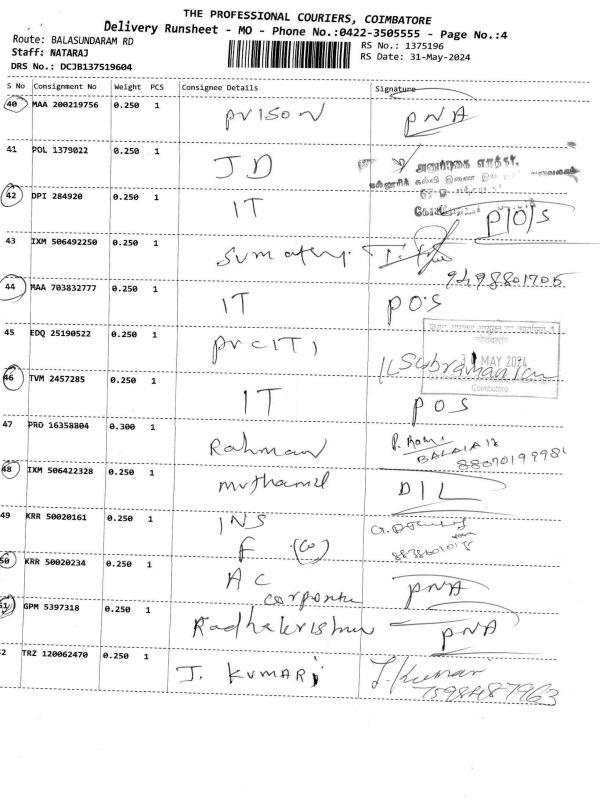 THE PROFESSIONAL COURIERS, COIMBATORE
Delivery Runsheet - MO - Phone No.:0422-3505555 - Page No.:4
Route: BALASUNDARAM RD
RS No.: 1375196
Staff: NATARAJ
RS Date: 31-May-2024
DRS No.: DCJB137519604
S No Consignment No Weight PCS Consignee Details Signature
40 MAA 200219756 0.250 1 prison PNA
41 POL 1379022 0.250 1 JD
42 DPI 284920 0.250 1 IT P/O/S
43 IXM 506492250 0.250 1
44 MAA 703832777 0.250 1 IT POS
45 EDQ 25190522 0.250 1 prCIT
MAY 2024
Coimbatore
46 TVM 2457285 0.250 1 IT POS
47 PRO 16358804 0.300 1 Rahman
48 IXM 506422328 0.250 1 muthamil DIL
49 KRR 50020161 0.250 1 INS
F (CO)
50 KRR 50020234 0.250 1 AC PNA
51 GPM 5397318 0.250 1 Radhakrishnan PNA
52 TRZ 120062470 0.250 1 J. KUMARI J. Kumari
7598487963